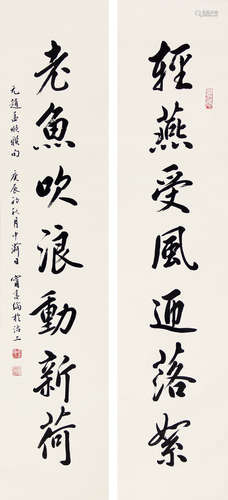 輕燕受風迎落絮
老魚吹浪動新荷
元趙孟頫聯句 庚辰初秋月中澣日 甯書綸於沽上